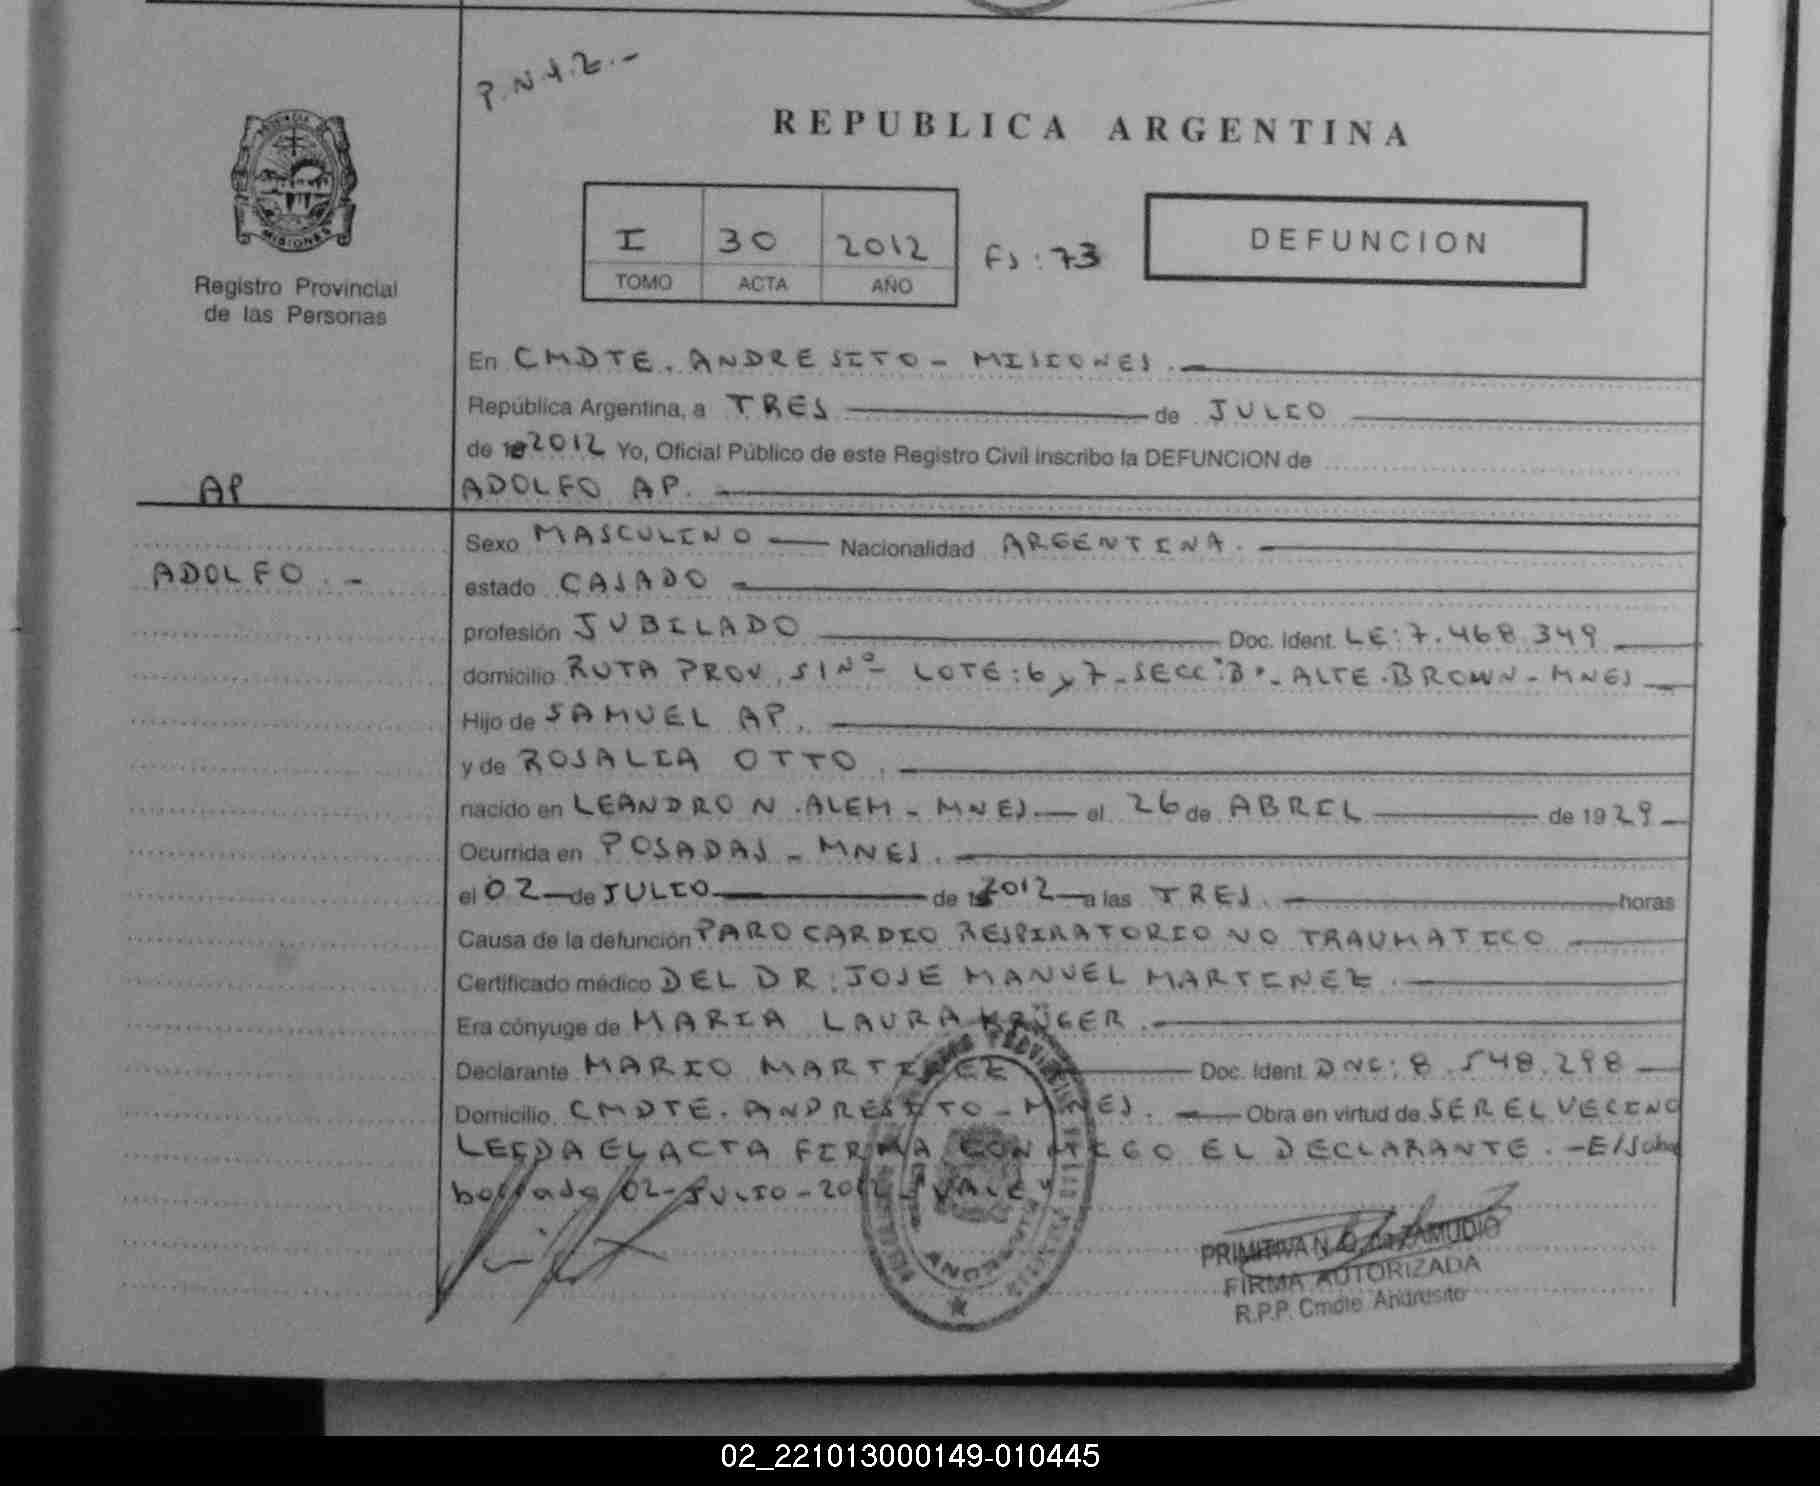 P.N.1.2.-
REPUBLICA ARGENTINA
MISIONES
Registro Provincial
de las Personas
I 30 2012 FS: 73 DEFUNCION
TOMO ACTA AÑO
En CMDTE. ANDRESITO - MISIONES.
República Argentina, a TRES de JULIO
de 2012 Yo, Oficial Público de este Registro Civil inscribo la DEFUNCION de
AP ADOLFO AP.
Sexo MASCULINO Nacionalidad ARGENTINA.
ADOLFO.- estado CASADO
profesión JUBILADO Doc. Ident. LE: 7.468.349
domicilio RUTA PROV. S/Nº- LOTE: 6 y 7-SECC"B"-ALTE.BROWN-MNES
Hijo de SAMUEL AP.
y de ROSALIA OTTO.
nacido en LEANDRO N. ALEM - MNES. el 26 de ABRIL de 1929
Ocurrida en POSADAS - MNES.
el 02 de JULIO de 2012 a las TRES. horas
Causa de la defunción PARO CARDIO RESPIRATORIO NO TRAUMATICO
Certificado médico DEL DR: JOSE MANUEL MARTINEZ.
Era cónyuge de MARIA LAURA KRÜGER.
Declarante MARIO MARTINEZ Doc. Ident. DNI: 8.548.298
Domicilio CMDTE. ANDRESITO - MNES. Obra en virtud de SER EL VECINO
LEIDA EL ACTA FIRMA CONMIGO EL DECLARANTE.-E/Sobre
borrado 02-JULIO-2012 "VALE"
PRIMITIVA N. ZAMUDIO
FIRMA AUTORIZADA
R.P.P. Cmdte. Andresito
02_221013000149-010445